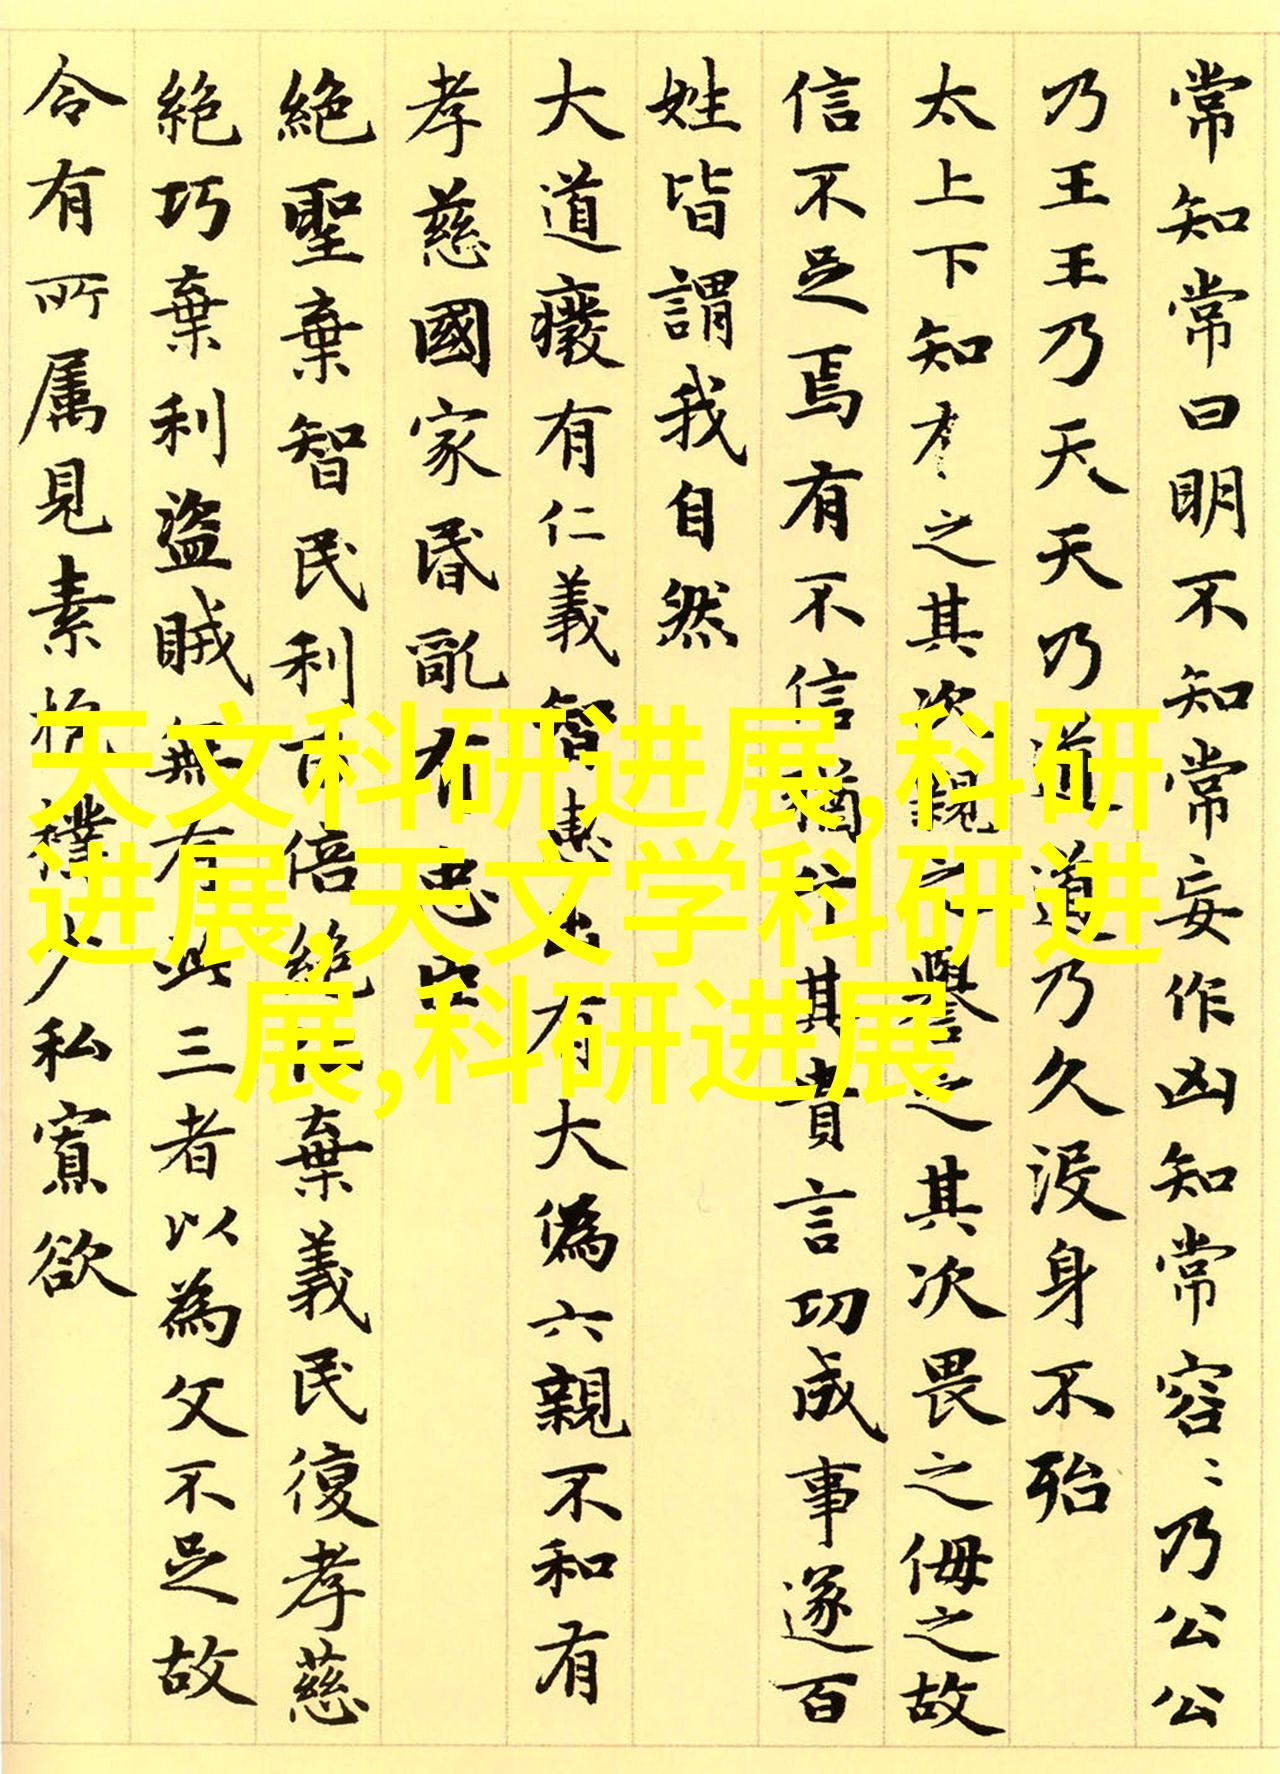 常知常曰明不知知常妄作凶知常容〻乃公公
乃王王乃天天乃道道乃久没身不殆
太上下知有之其次親之譽之其次畏之侮之故
信不足焉有不信猶其貴言功成事遂百
姓皆謂我自然
大道癈有仁義智惠出有大偽六親不和有
孝慈國家昏亂有忠臣
絶聖棄智民利百倍絶仁棄義民復孝慈
絶巧棄利盗賊無有此三者以為文不足故
令有所属見素抱襆少私寡欲
天文科研进展,科研
进展,天文学科研进
展,科研进展